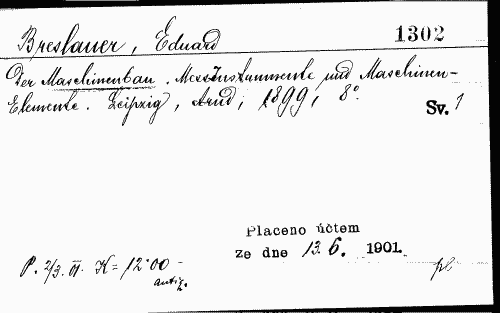 Breslauer, Eduard 1302
Der Maschinenbau. Messinstrumente und Maschinen-
Elemente. Leipzig, Arnd, 1899, 8°.
Sv. 1
Placeno účtem
ze dne 13. 6. 1901.
P. 2/3. II. K = 12·00 -
antiq.
pl